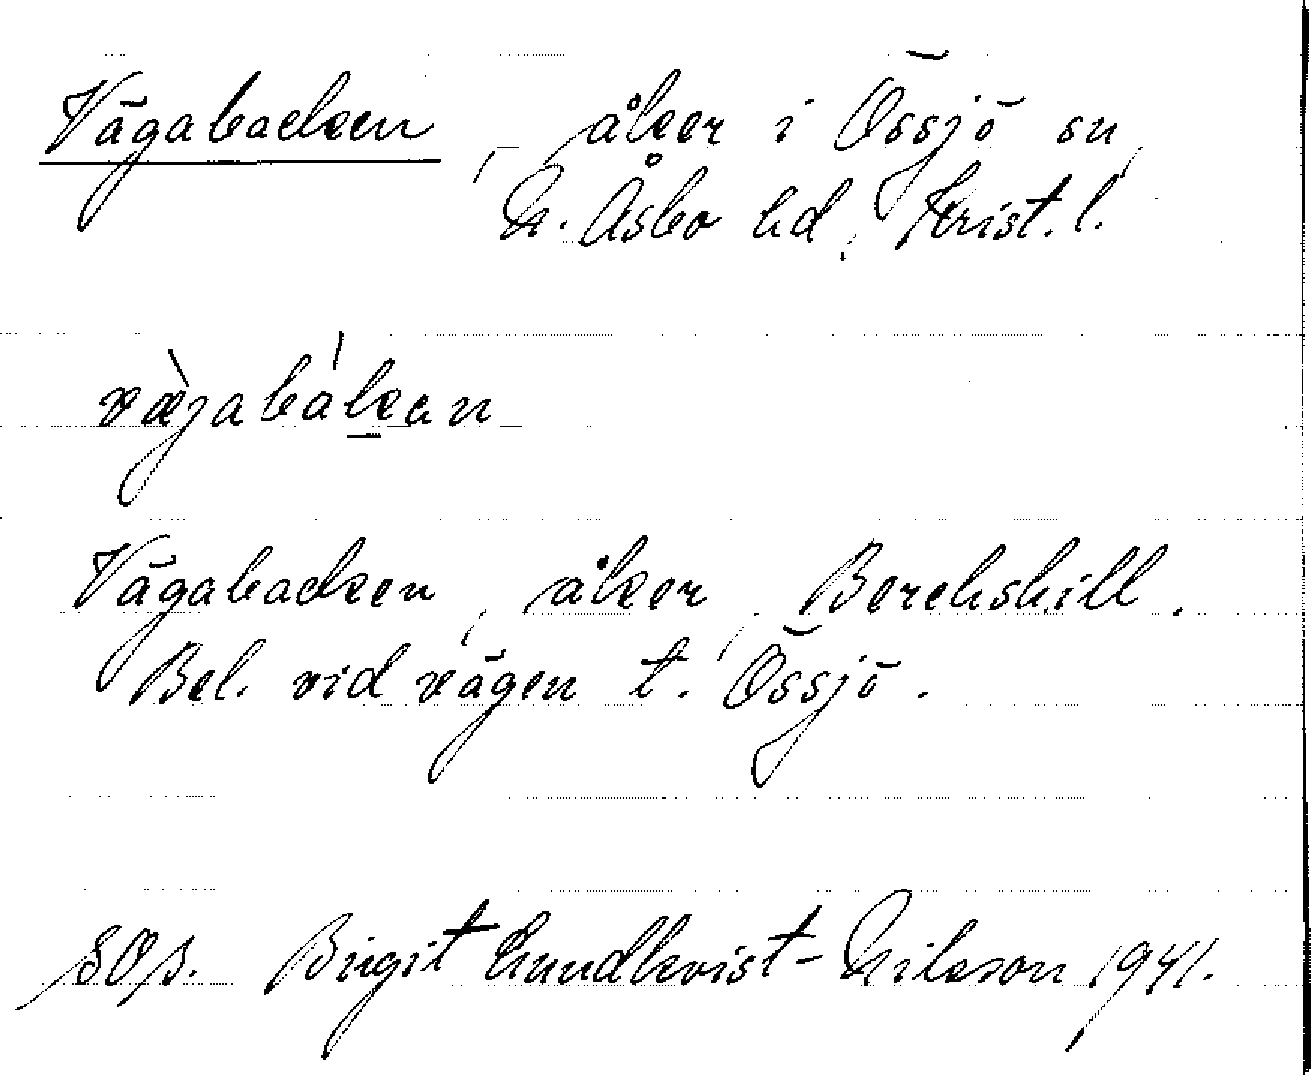 Vägabacken, åker i Össjö sn,
N. Åsbo hd, Krist. l.
vä̀jabákan
Vägabacken, åker, Berchshill.
Bel. vid vägen t. Össjö.
Birgit Lundkvist-Nilsson 1941.